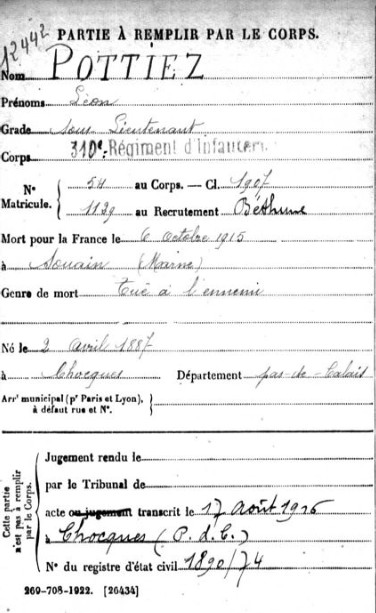 12442
PARTIE À REMPLIR PAR LE CORPS.
Nom POTTIEZ
Prénoms Léon
Grade Sous Lieutenant
Corps 310e. Régiment d'Infanterie
N° Matricule. { 54 au Corps. — Cl. 1907
1139 au Recrutement Béthune
Mort pour la France le 6 Octobre 1915
à Souain (Marne)
Genre de mort Tué à l'ennemi
Né le 2 avril 1887
à Chocques Département pas-de-Calais
Arrt municipal (pr Paris et Lyon),
à défaut rue et N°.
Cette partie
n'est pas à remplir
par le Corps.
Jugement rendu le
par le Tribunal de
acte ou jugement transcrit le 17 Août 1916
à Chocques (P. d. C.)
N° du registre d'état civil 1890/74
269-708-1922. [26434]